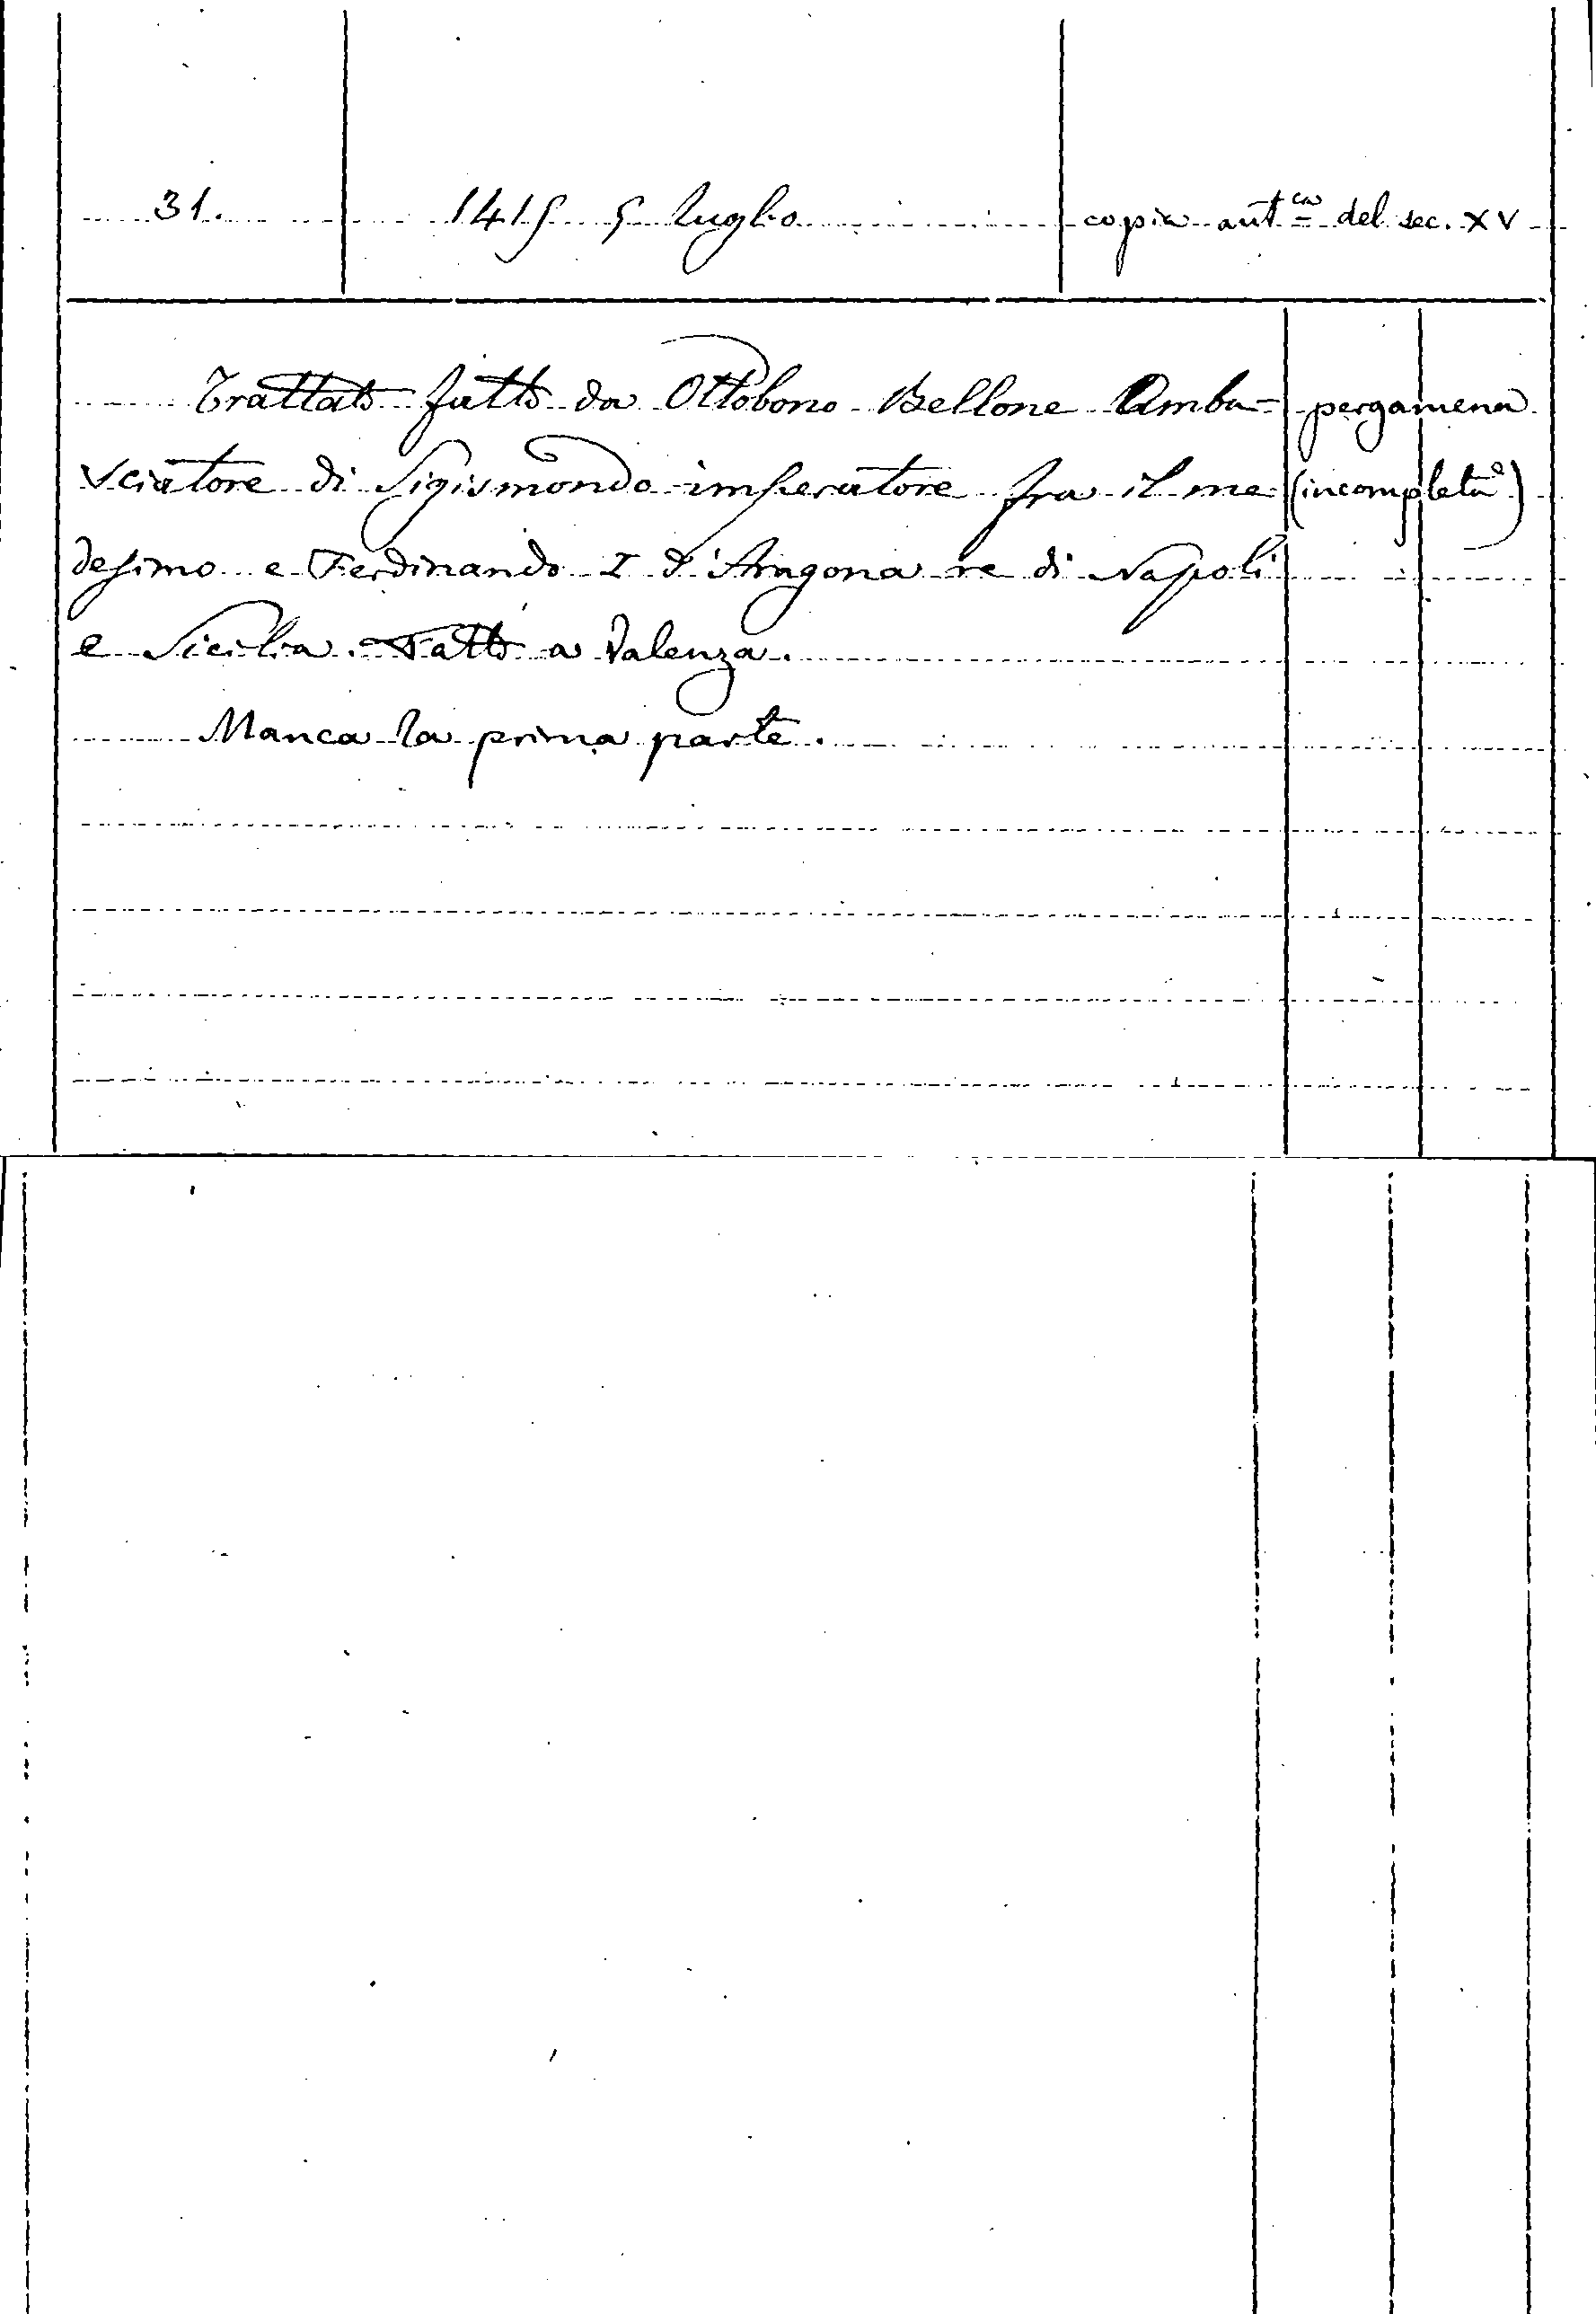 31. 1415 5 luglio copia aut.ca del sec. XV
Trattato fatto da Ottobono Bellone Amba- pergamena
sciatore di Sigismondo imperatore fra il me (incompleta)
desimo e Ferdinando I d'Aragona re di Napoli
e Sicilia. Fatto a Valenza.
Manca la prima parte.